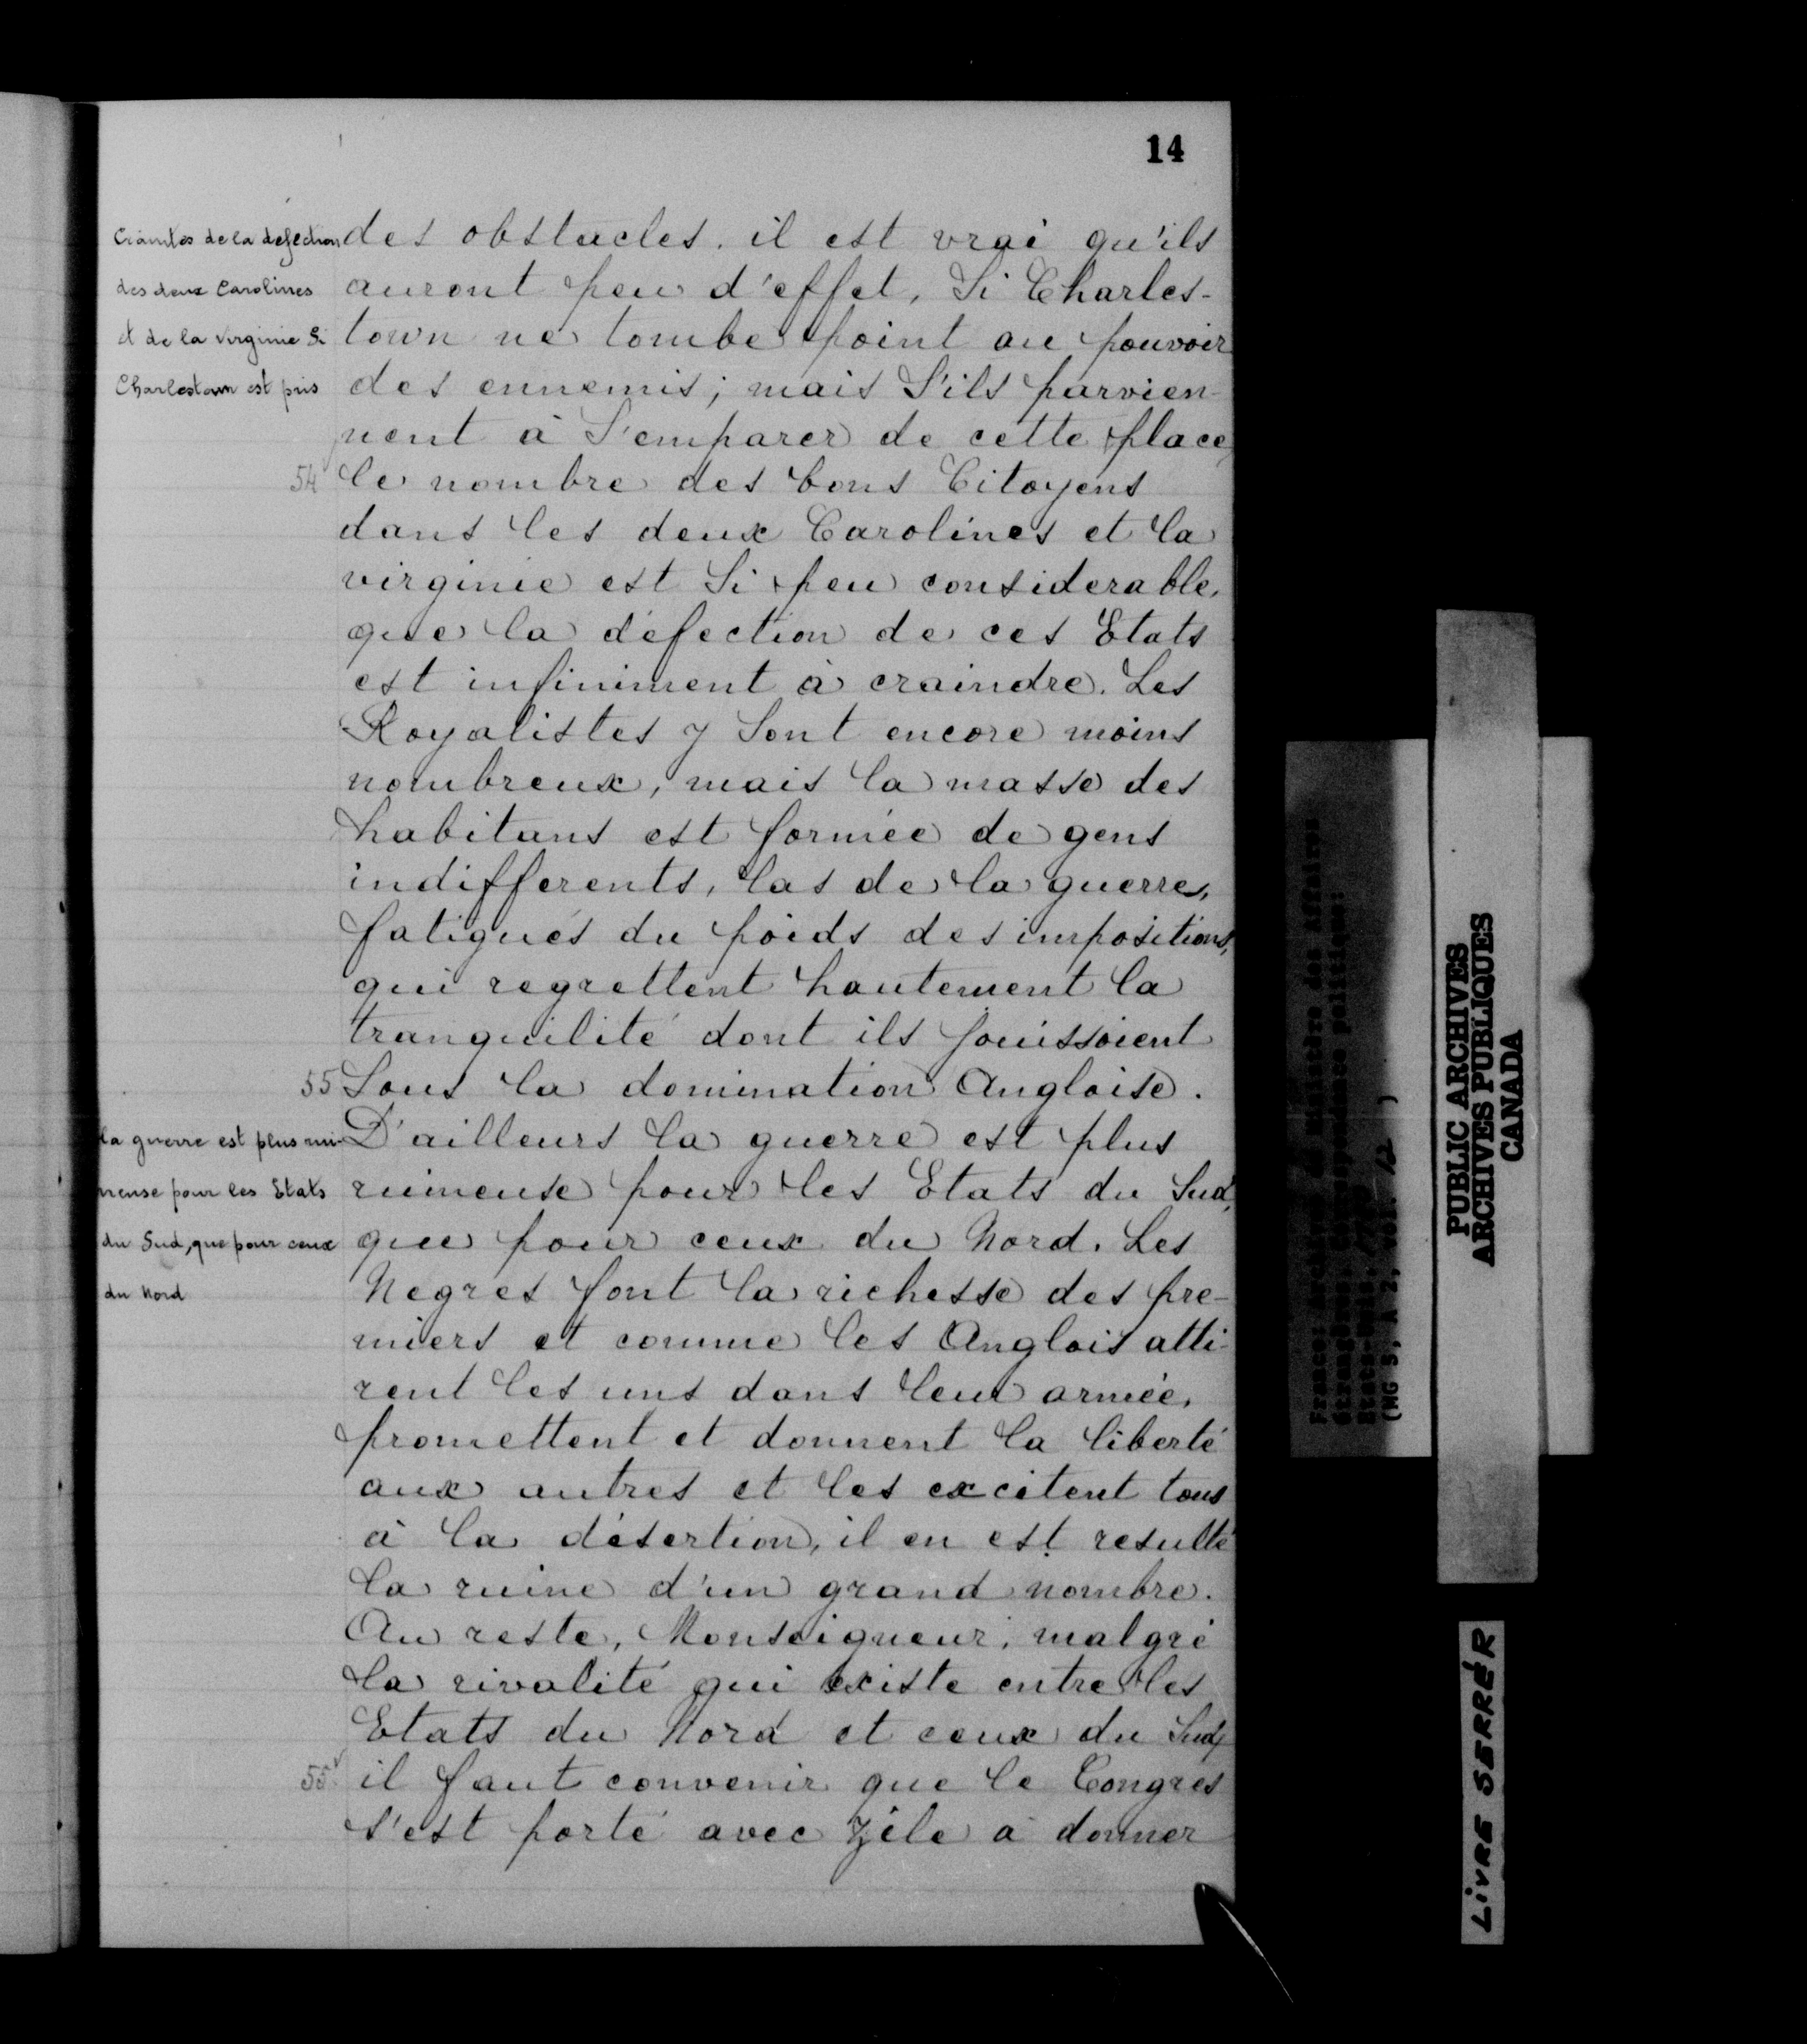 14
Craintes de la défection
des deux Carolines
et de la Virginie Si
Charlestown est pris
des obstacles. il est vrai qu'ils
auront peu d'effet, Si Charles-
town ne tombe point au pouvoir
des ennemis; mais S'ils parvien-
nent à S'emparer de cette place,
54 le nombre des bons Citoyens
dans les deux Carolines et la
virginie est Si peu considerable,
que la défection de ces Etats
est infiniment à craindre. Les
Royalistes y Sont encore moins
nombreux, mais la masse des
habitans est formée de gens
indifferents, las de la guerre,
fatigués du poids des impositions,
qui regrettent hautement la
tranquilité dont ils jouissoient
55 Sous la domination Angloise.
la guerre est plus rui-
neuse pour les Etats
du Sud, que pour ceux
du Nord
D'ailleurs la guerre est plus
ruineuse pour les Etats du Sud,
que pour ceux du Nord. Les
Negres font la richesse des pre-
miers et comme les Anglois atti-
rent les uns dans leur armée,
promettent et donnent la liberté
aux autres et les excitent tous
à la désertion, il en est resulté
la ruine d'un grand nombre.
Au reste, Monseigneur, malgré
la rivalité qui existe entre les
Etats du Nord et ceux du Sud,
55v il faut convenir que le Congres
s'est porté avec zèle à donner
(MG 5, A 2, vol. 12 )
PUBLIC ARCHIVES
ARCHIVES PUBLIQUES
CANADA
LIVRE SERRÉR